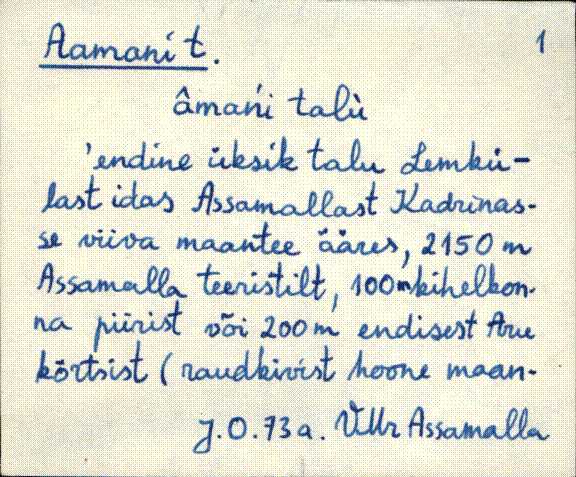 Aamani t. 1
âmańi talù
'endine üksik talu Lemkü-
last idas Assamallast Kadrinas-
se viiva maantee ääres, 2150 m
Assamalla teeristilt, 100m kihelkon-
na piirist või 200 m endisest Aru
kõrtsist (raudkivist hoone maan-
J.O.73a. VMr Assamalla